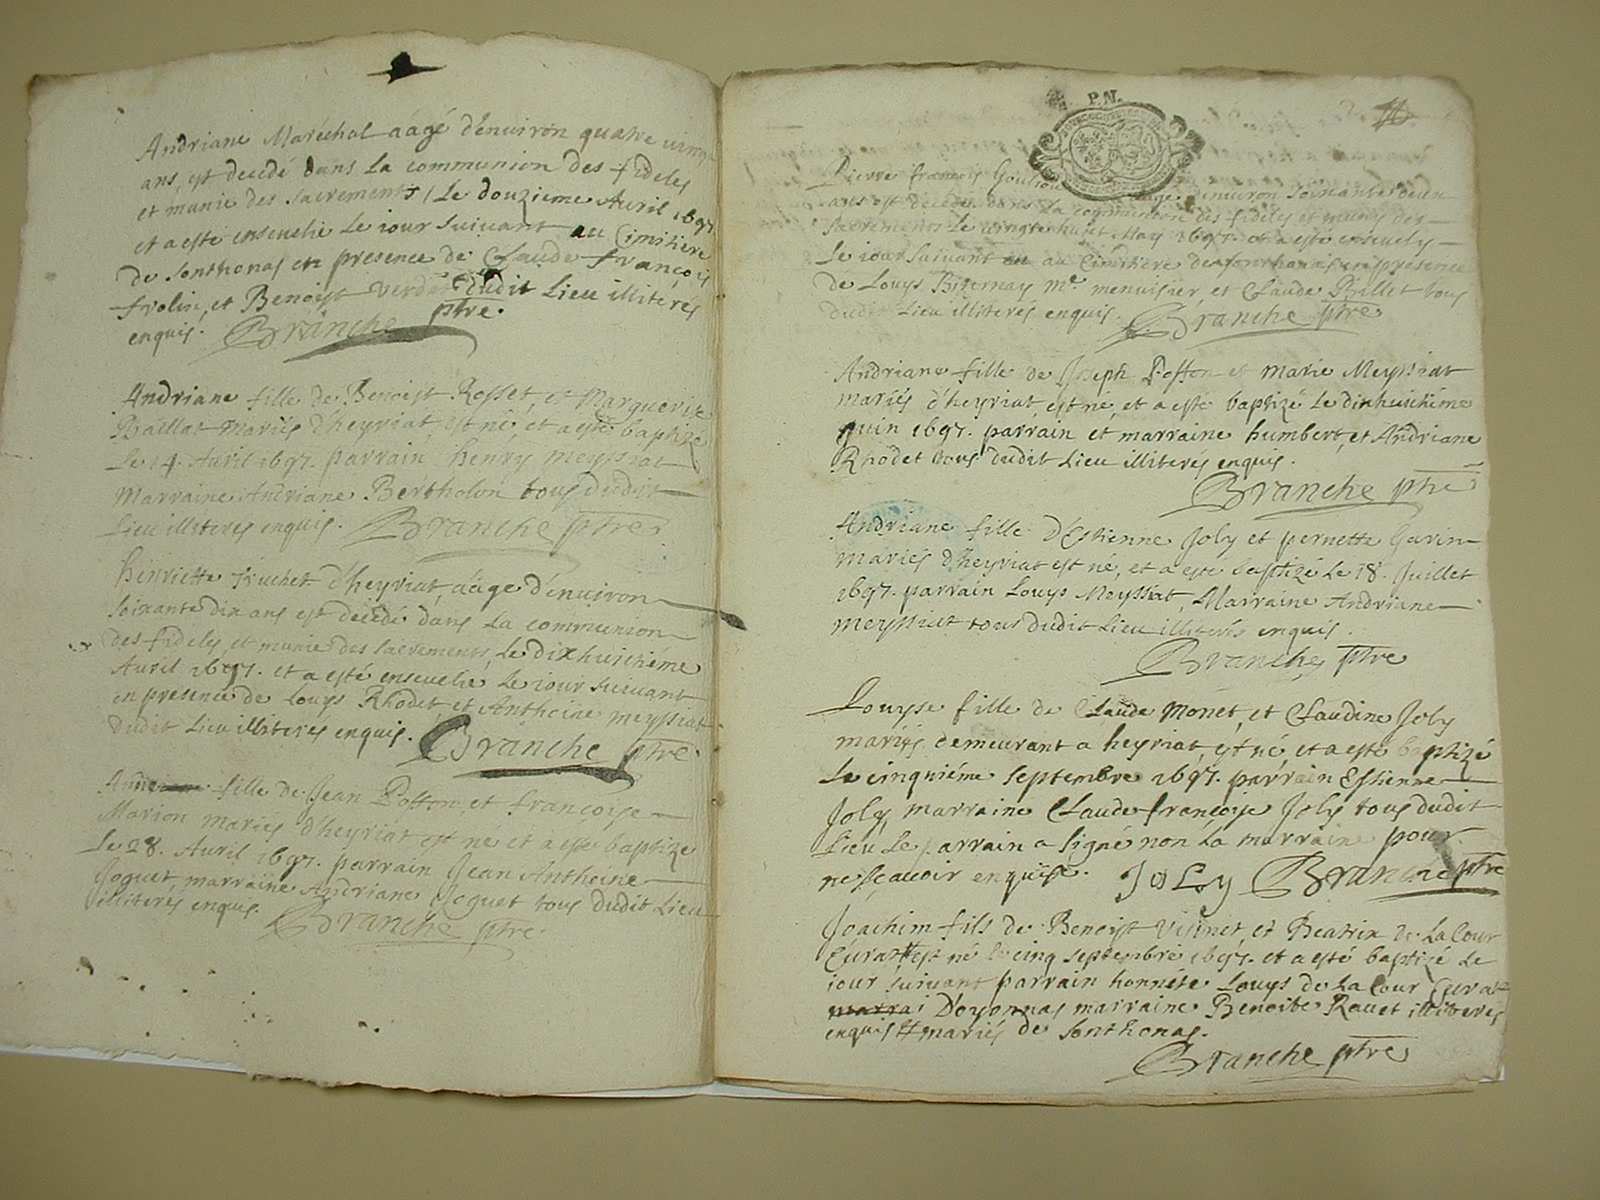 Andriane Maréchal aâgé d'enuiron quatre vingt
ans, est decedé dans la communion des fideles
et munie des sacrements, Le douzieme Auril 1697.
et a esté enseuelie le iour suiuant au Cimitiere
de Sonthonas en presence de Claude François
frolin, et Benoist verd dudit Lieu illiterés
enquis. Branche ptre.
Andriane fille de Benoist Rosset, et Marguerite
Baillat mariés d'heyriat, est né, et a esté baptizé
Le 14. Auril 1697. parrain henry meyssiat
Marraine Andriane Bertholon tous dudit
Lieu illiterés enquis. Branche ptre
henriette truchet d'heyriat, aâge d'enuiron
soixante dix ans est décédé dans La communion
des fideles, et munie des sacrements, Le dixhuictiéme
Auril 1697. et a esté enseuelie Le iour suiuant
en presence de Louys Rhodet et Anthoine meyssiat
dudit Lieu illiterés enquis. Branche ptre.
fille de Jean Poffon, et françoise
Marion mariés d'heyriat est né et a esté baptizé
Le 28. Auril 1697. parrain Jean Anthoine
Joguet, marraine Andriane Joguet tous dudit Lieu
illiterés enquis. Branche ptre.
P.N.
Pierre françois aagé d'enuiron soixante
ans est decedé dans La communion des fideles et munys des
sacrements Le vingt huict May 1697. et a esté enseuely
Le iour suiuant au Cimitiere de Sonthonas en presence
de Louys mr. menuisier, et Claude Brillet tous
dudit Lieu illiterés enquis. Branche ptre
Andriane fille de Joseph Poffon et marie Meyssiat
mariés d'heyriat est né, et a esté baptizé Le dixhuictiéme
Juin 1697. parrain et marraine humbert, et Andriane
Rhodet tous dudit Lieu illiterés enquis.
Branche ptre
Andriane fille d'Estienne Joly et pernette Gavin
mariés d'heyriat est né, et a esté baptizé Le 18. Juillet
1697. parrain Louys Meyssiat, Marraine Andriane
meyssiat tous dudit Lieu illiterés enquis.
Branche ptre
Louyse fille de Claude Monet, et Claudine Joly
mariés demeurant a heyriat, est né et a esté baptizé
Le cinquiéme septembre 1697. parrain Estienne
Joly, marraine Claude françoise Joly tous dudit
Lieu Le parrain a signé non La marraine pour
ne sçauoir enquise. JoLy Branche ptre
Joachim fils de Benoist Vilinet, et Beatrix de La Cour
Curat # est né le cinq septembre 1697. et a esté baptizé Le
iour suiuant parrain honnéte Louys de La Cour Curat
marrai D'oyonnas marraine Benoite Rauet illiterés
enquis # mariés de Sonthonas.
Branche ptre